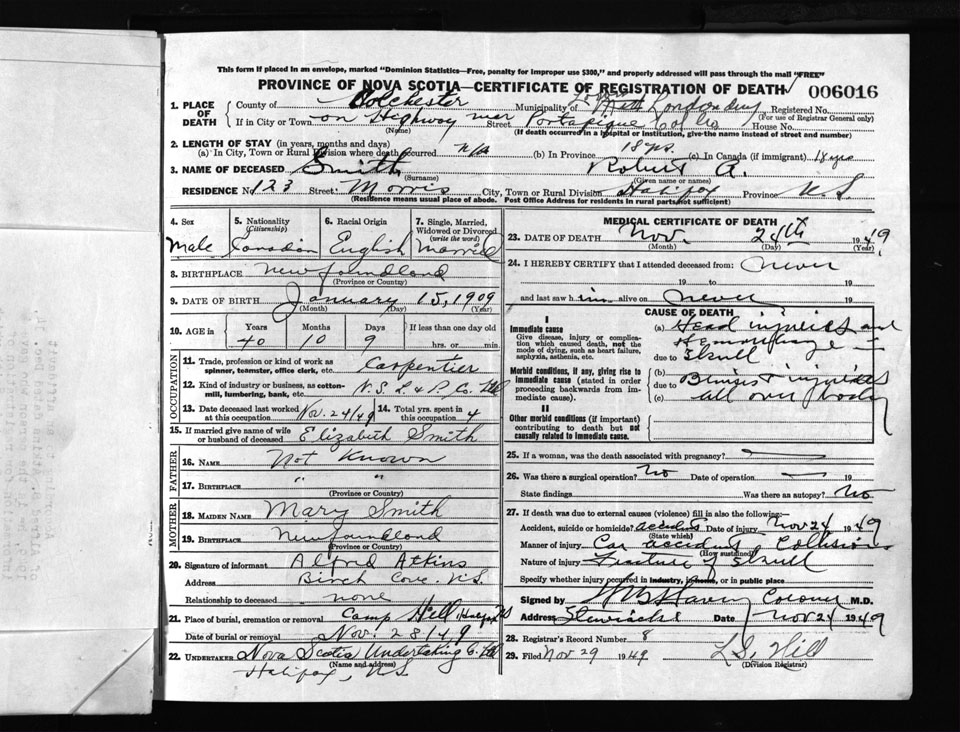 This form if placed in an envelope, marked "Dominion Statistics—Free, penalty for improper use $300," and properly addressed will pass through the mail "FREE"
PROVINCE OF NOVA SCOTIA—CERTIFICATE OF REGISTRATION OF DEATH 006016
1. PLACE OF DEATH County of Colchester Municipality of Londonderry Registered No.
(For use of Registrar General only)
If in City or Town on Highway near Street Portapique Col Co House No.
(Name) (If death occurred in a hospital or institution, give the name instead of street and number)
2. LENGTH OF STAY (in years, months and days)
(a) In City, Town or Rural Division where death occurred n/a (b) In Province 18 yrs. (c) In Canada (if immigrant) 18 yrs
3. NAME OF DECEASED Smith Robert A.
(Surname) (Given name or names)
RESIDENCE No 123 Street Morris City, Town or Rural Division Halifax Province N.S.
(Residence means usual place of abode. Post Office Address for residents in rural parts not sufficient)
4. Sex 5. Nationality (Citizenship) 6. Racial Origin 7. Single, Married, Widowed or Divorced (write the word)
Male Canadian English Married
8. BIRTHPLACE Newfoundland
(Province or Country)
9. DATE OF BIRTH January 15, 1909
(Month) (Day) (Year)
10. AGE in Years Months Days If less than one day old
40 10 9 hrs. or min.
OCCUPATION
11. Trade, profession or kind of work as spinner, teamster, office clerk, etc. Carpentier
12. Kind of industry or business, as cotton-mill, lumbering, bank, etc. N.S. L & P. Co. Ltd
13. Date deceased last worked at this occupation Nov. 24/49 14. Total yrs. spent in this occupation 4
15. If married give name of wife or husband of deceased Elizabeth Smith
FATHER
16. NAME Not Known
17. BIRTHPLACE " "
(Province or Country)
MOTHER
18. MAIDEN NAME Mary Smith
19. BIRTHPLACE Newfoundland
(Province or Country)
20. Signature of informant Alfred Atkins
Address Birch Cove. N.S.
Relationship to deceased none
21. Place of burial, cremation or removal Camp Hill Halifax NS
Date of burial or removal Nov. 28/49
22. UNDERTAKER Nova Scotia Undertaking Co. Ltd
(Name and address)
Halifax, N.S.
MEDICAL CERTIFICATE OF DEATH
23. DATE OF DEATH Nov. 24th 1949
(Month) (Day) (Year)
24. I HEREBY CERTIFY that I attended deceased from: Never
19 to 19
and last saw him alive on never 19
CAUSE OF DEATH
I
Immediate cause
Give disease, injury or complication which caused death, not the mode of dying, such as heart failure, asphyxia, asthenia, etc.
(a) Head injuries and
Hemorrhage
due to Skull
Morbid conditions, if any, giving rise to immediate cause (stated in order proceeding backwards from immediate cause).
(b) due to Bruises + injuries
(c) all over body
II
Other morbid conditions (if important) contributing to death but not causally related to immediate cause.
25. If a woman, was the death associated with pregnancy?
26. Was there a surgical operation? No Date of operation 19
State findings Was there an autopsy? No
27. If death was due to external causes (violence) fill in also the following:—
Accident, suicide or homicide? accident Date of injury Nov 24 1949
(State which)
Manner of injury Car accident Collision
(How sustained)
Nature of injury Fracture of Skull
Specify whether injury occurred in industry, in home, or in public place
Signed by Coroner M.D.
Address Stewiacke Date Nov 24 1949
28. Registrar's Record Number 8
29. Filed Nov 29 1949 L.S. Hill
(Division Registrar)